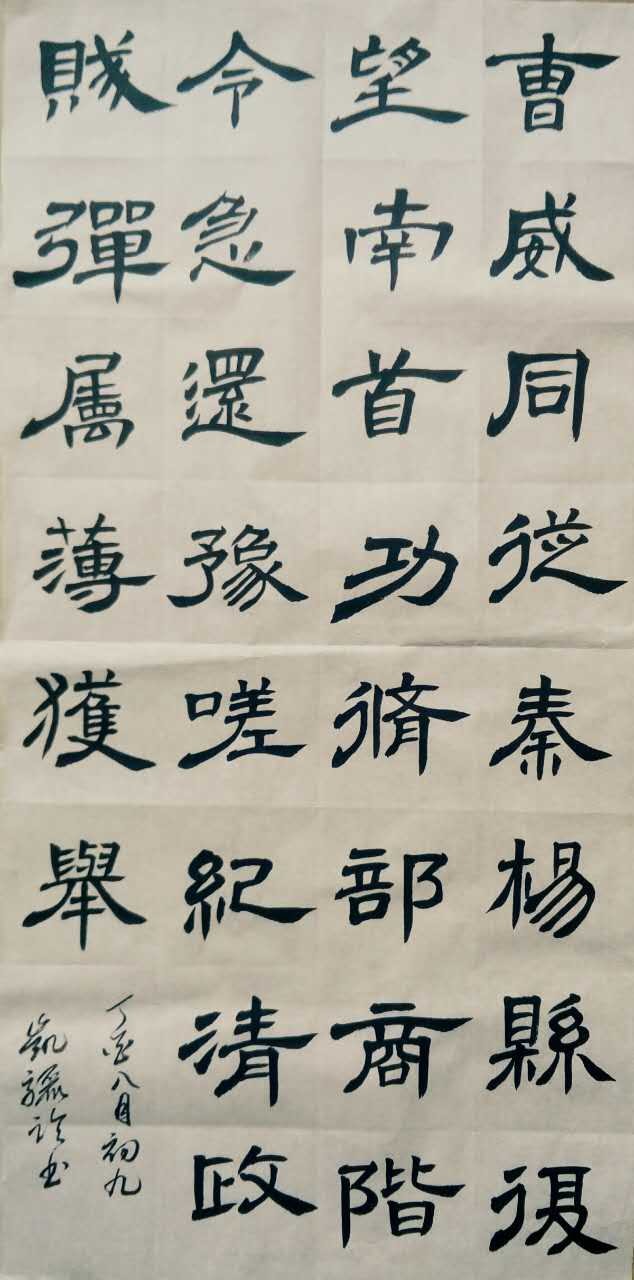 曹威同從秦楊縣復
望南首功脩部商階
令急還豫嗟紀清政
賤彈属薄獲舉
丁酉八月初九
凱驪 書